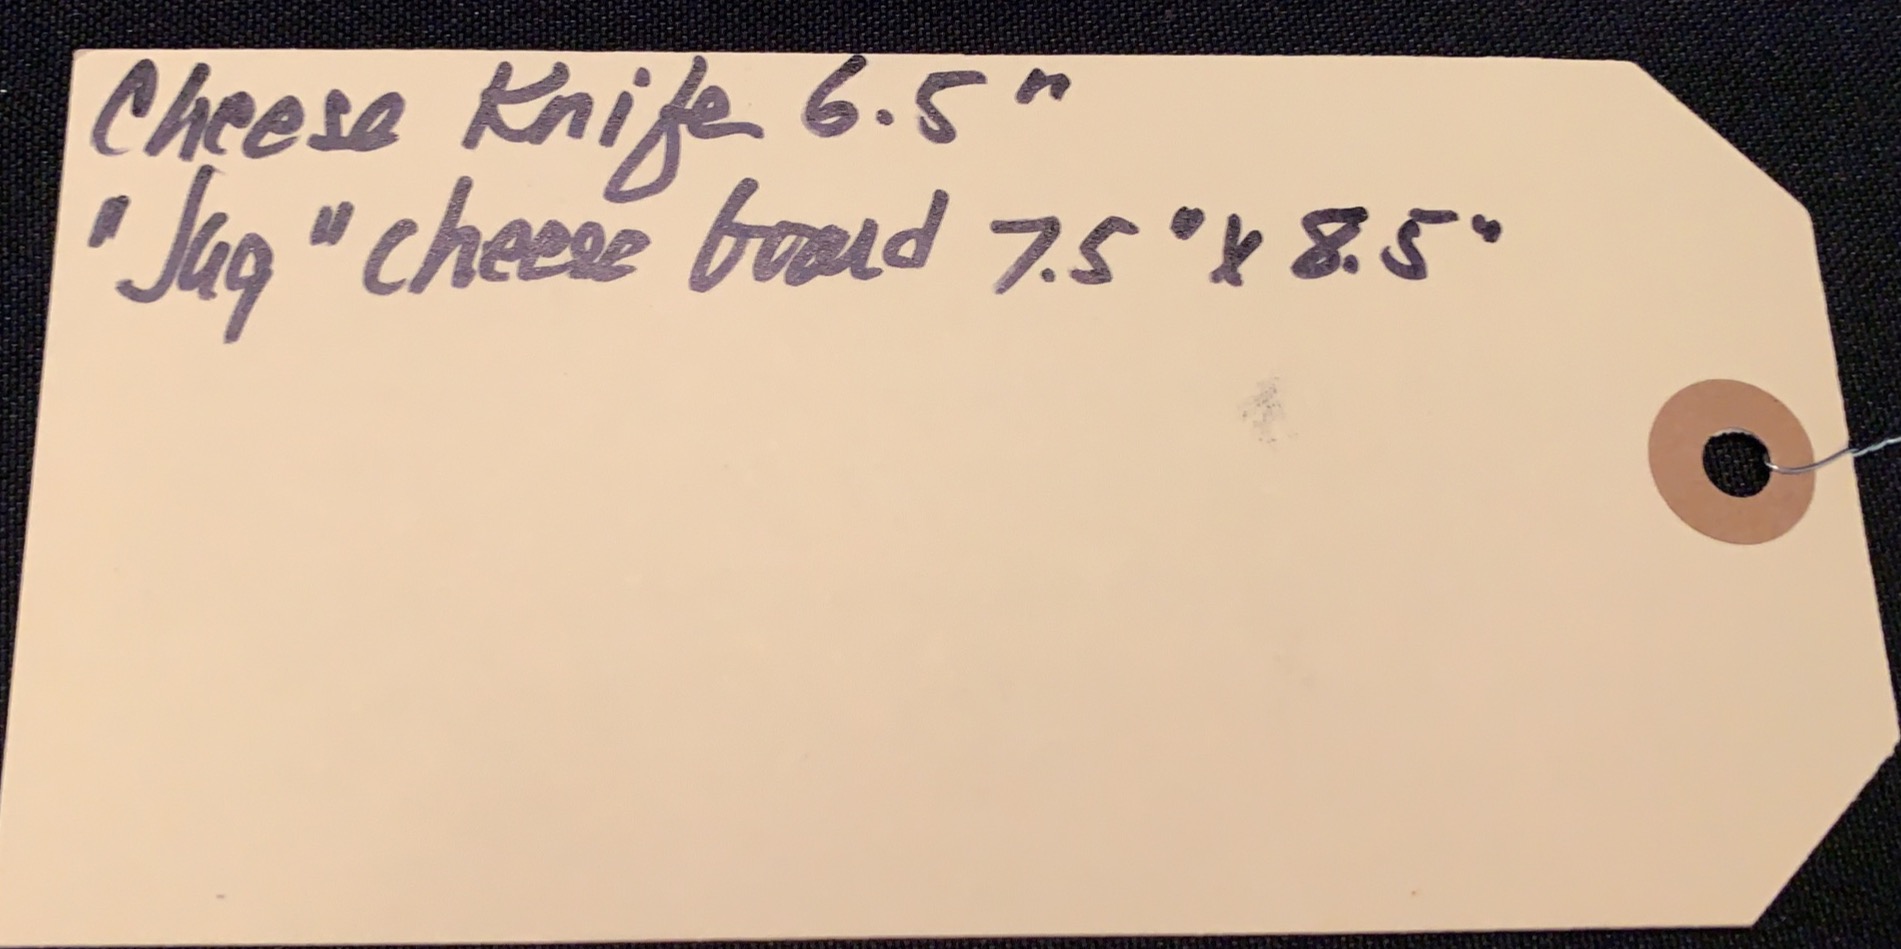 Cheese Knife 6.5"
"Jug" cheese board 7.5" x 8.5"